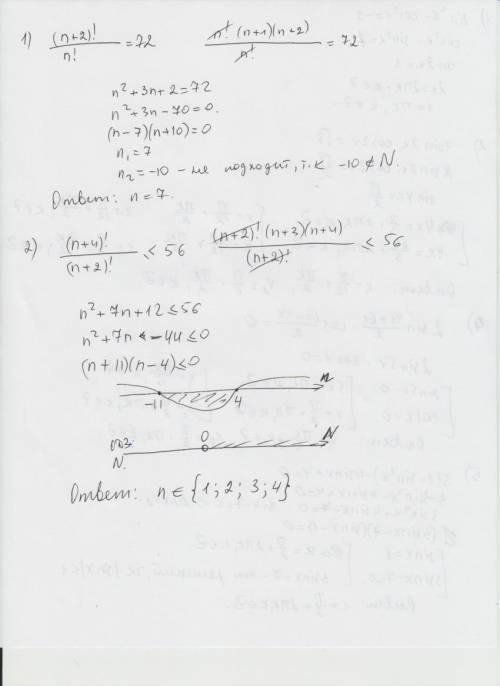 1) (n+2)!/n! = 72   n! (n+1)(n+2)/n! = 72
n² + 3n + 2 = 72
n² + 3n - 70 = 0.
(n-7)(n+10) = 0
n₁ = 7
n₂ = -10 - не подходит, т.к -10 ∉ N.
Ответ: n = 7.
2) (n+4)!/(n+2)! ≤ 56   (n+2)! (n+3)(n+4)/(n+2)! ≤ 56
n² + 7n + 12 ≤ 56
n² + 7n - 44 ≤ 0
(n+11)(n-4) ≤ 0
n
-11 4
ОДЗ: 0 N
N.
Ответ: n ∈ {1; 2; 3; 4}